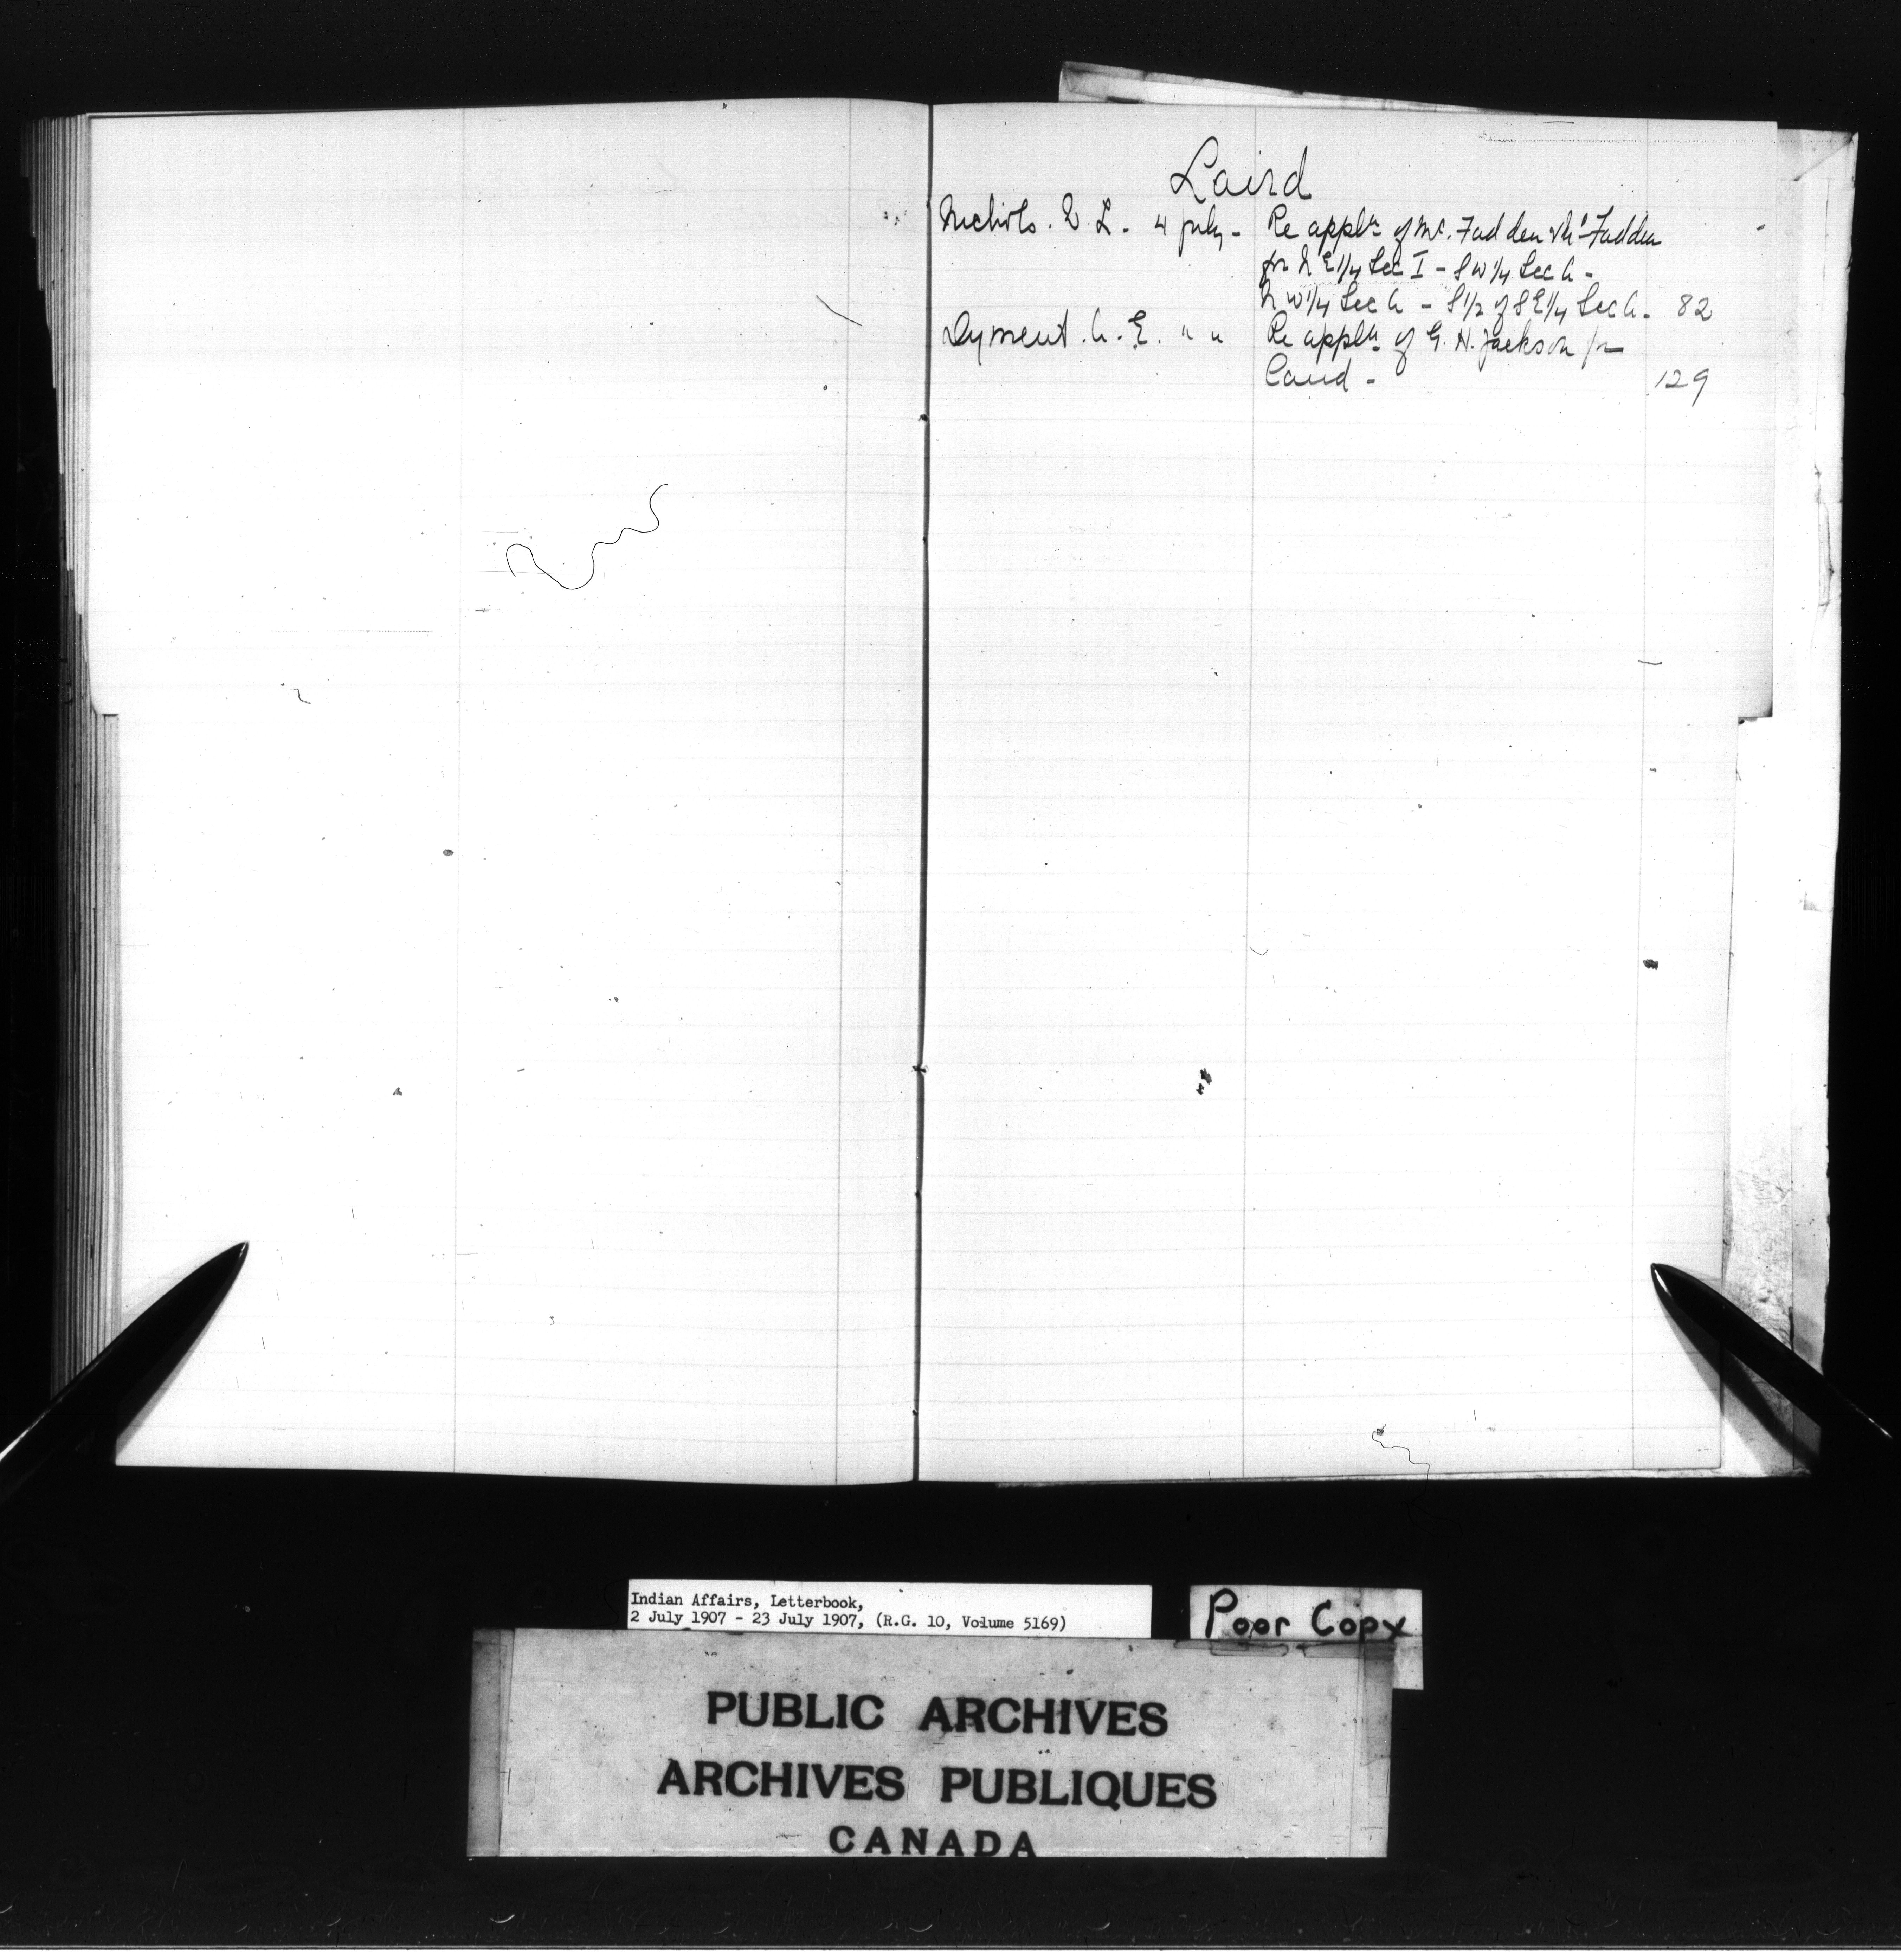 Laird
Nichols. W. L. - 4 July - Re appln of Mc.Fadden & Mc Fadden
for N E 1/4 Sec I - S W 1/4 Sec
N W 1/4 Sec - S 1/2 of S E 1/4 Sec 82
Dyment. A. E. " " Re appln of G. H. Jackson for
Land - 129
Indian Affairs, Letterbook,
2 July 1907 - 23 July 1907, (R.G. 10, Volume 5169)
Poor Copy
PUBLIC ARCHIVES
ARCHIVES PUBLIQUES
CANADA